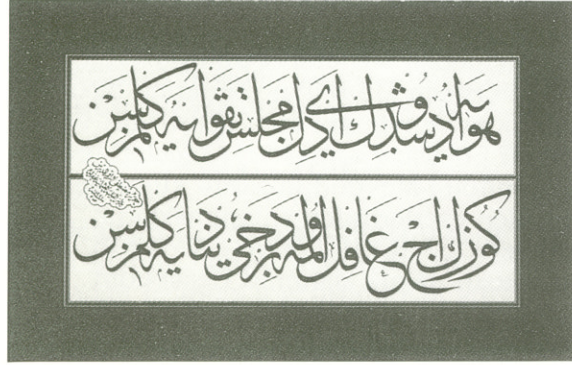 هوایه دوشدك ای دل مجلس تقوایه كلمزسن
كوزك اچ غافل اولمه بر دخی دنیایه كلمزسن